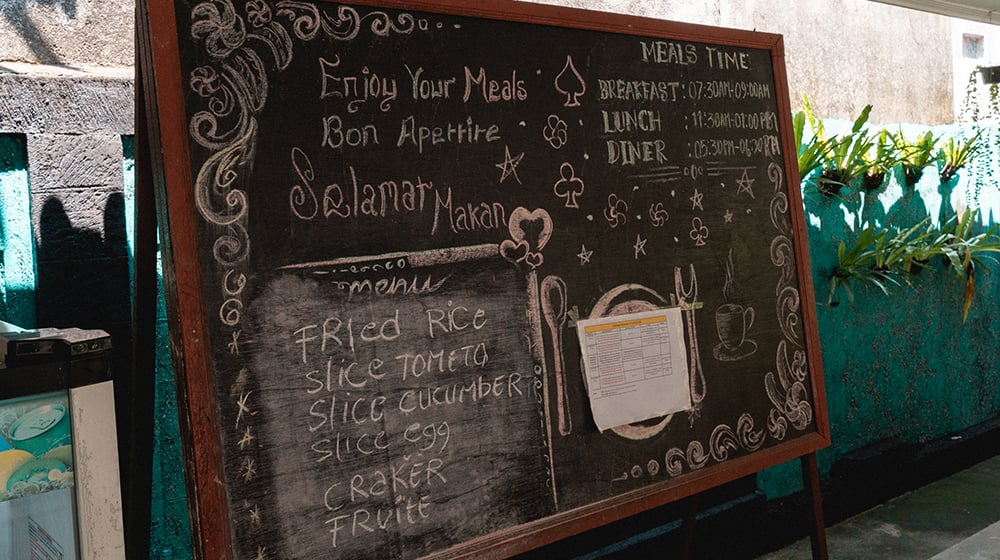 Enjoy Your Meals
Bon Apetite
Selamat Makan
menu
FRied RiCe
slice TOMETO
SLICE CUCUMBER
slice egg
CRAKER
FRUITE
MEALS TIME
BREAKFAST : 07:30AM-09:00AM
LUNCH : 11:30AM-01:00PM
DINER : 05:30PM-06:30PM